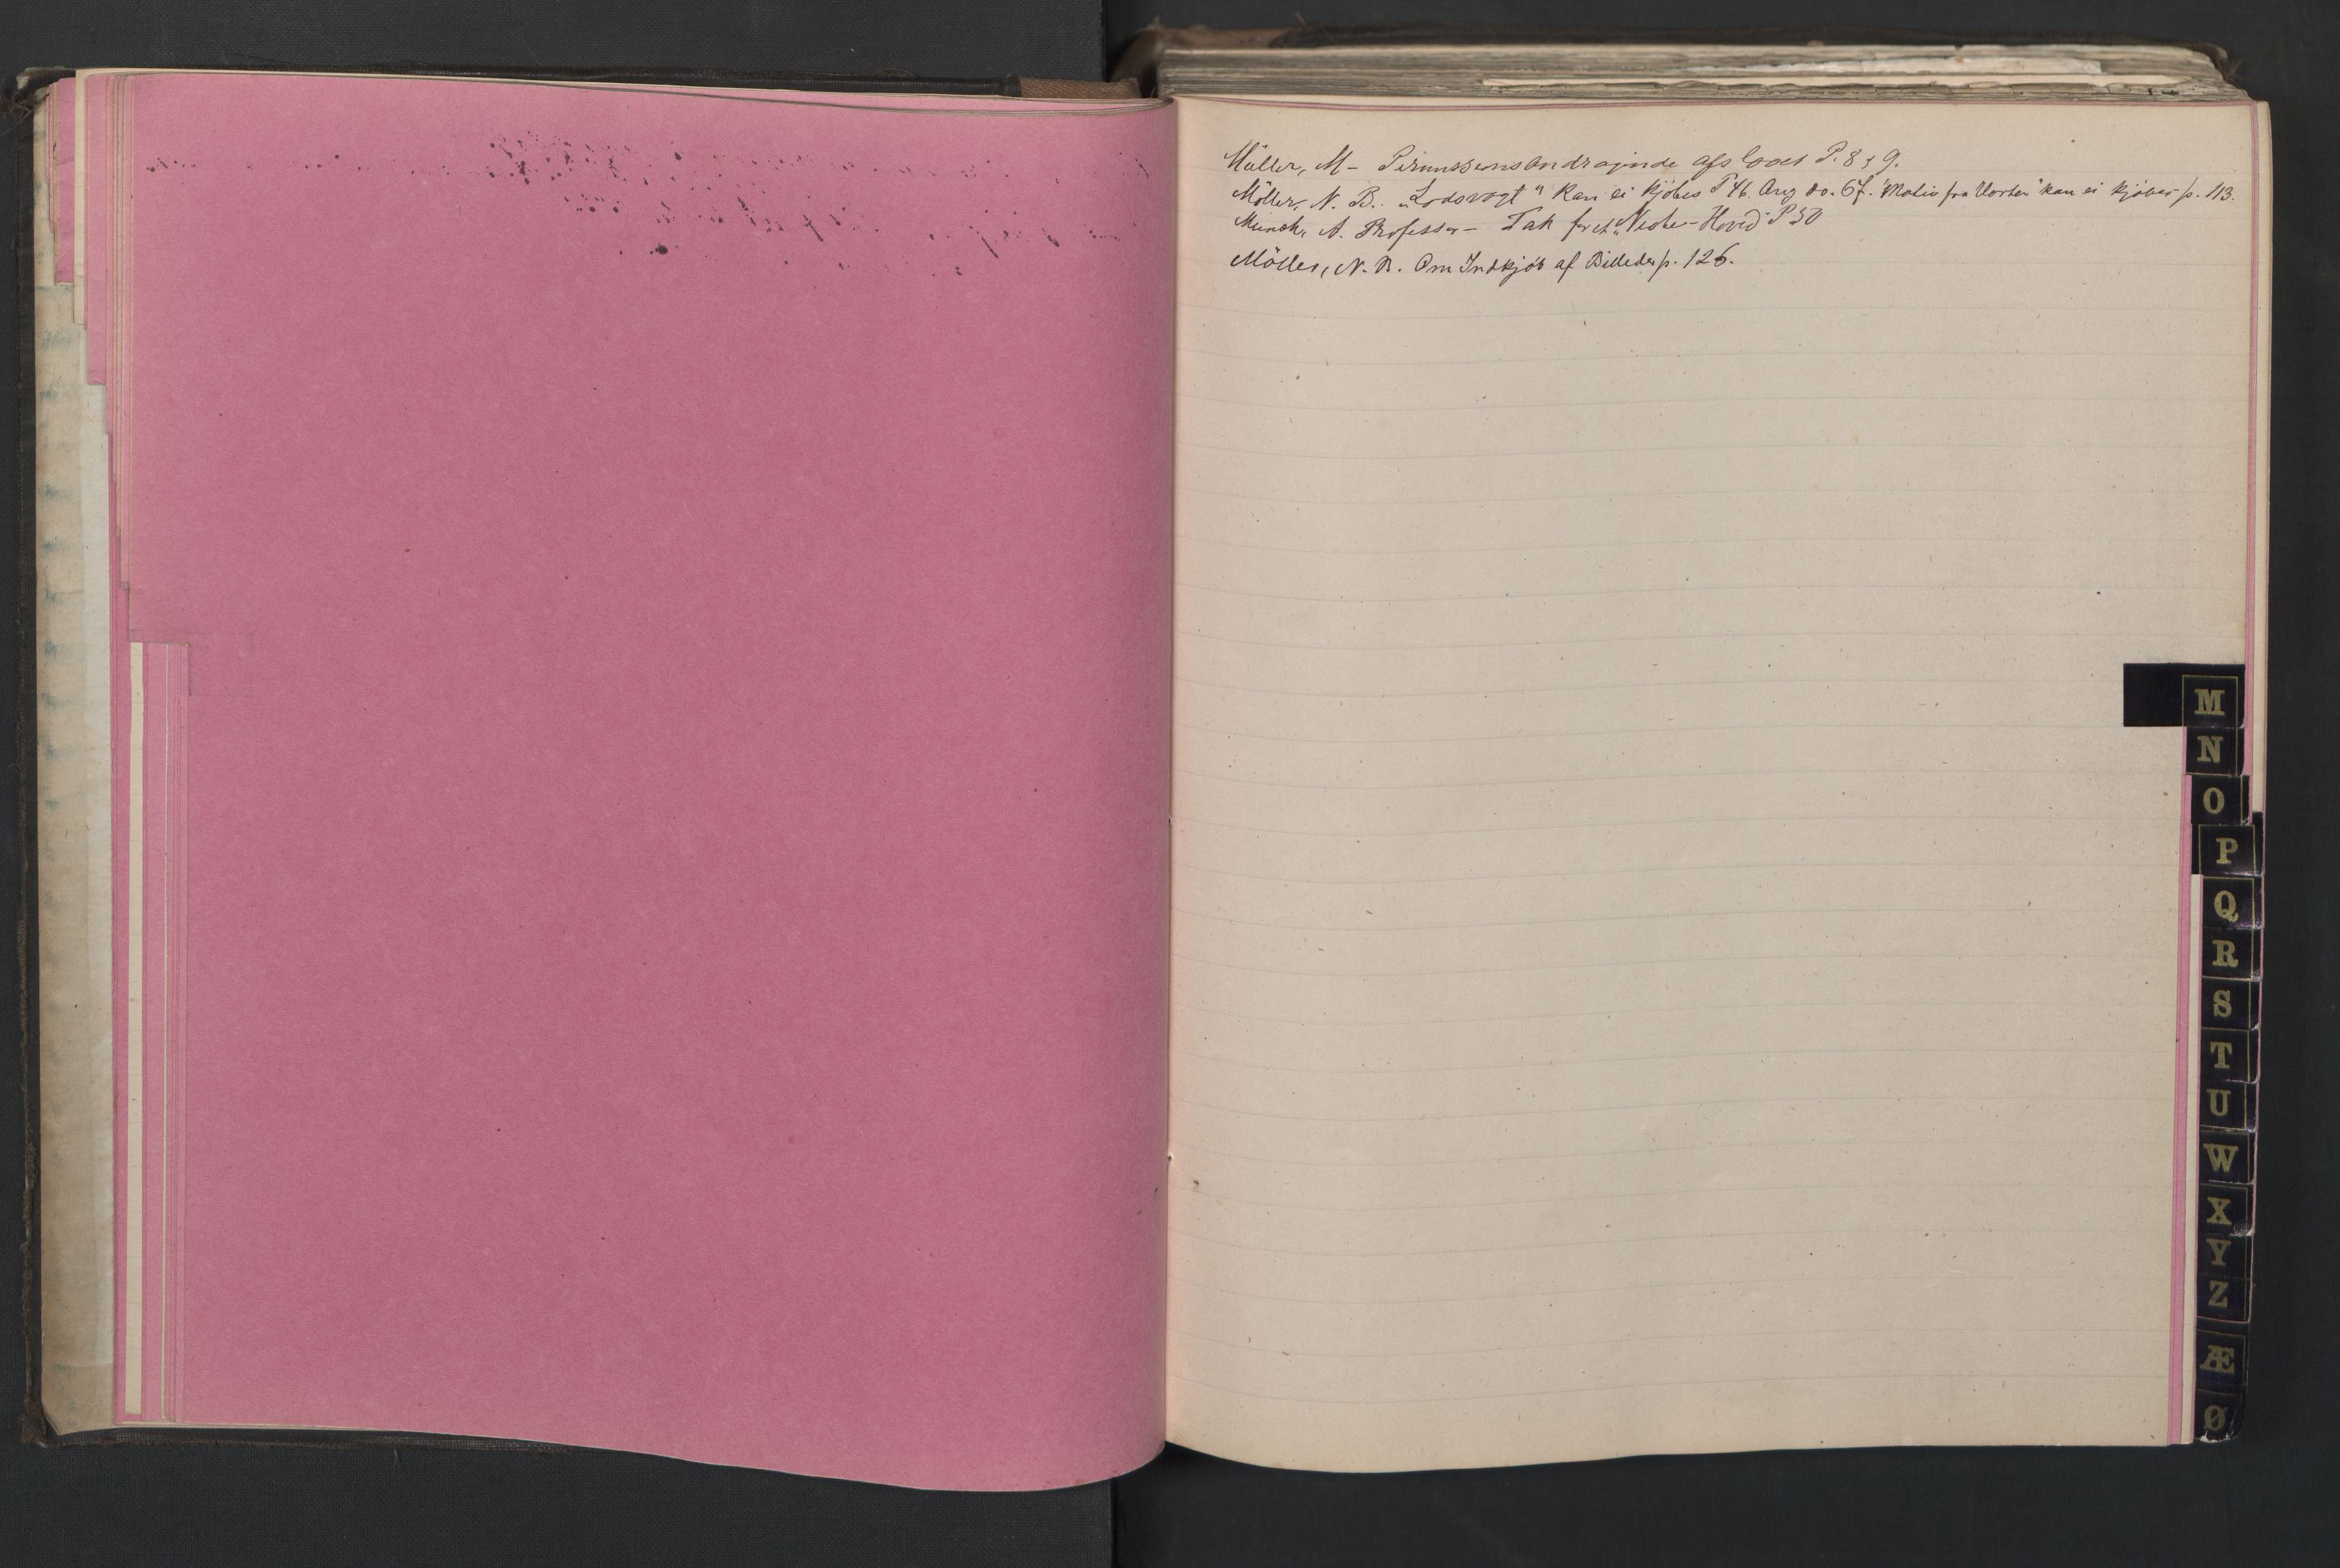 Müller, M - Permissionsandragende afslaaes P. 8 & 9.
Möller, N. B. "Lodsvagt" kan ei kjöbes P 46. Ang do. 67. "Motiv fra Varten" kan ei kjöbes p. 113.
Munch, A. Professor - Tak for et Hoved P 50
Möller, N. B. Om Indkjöb af Billeder p. 126.
M
N
O
P
Q
R
S
T
U
W
X
Y
Z
Æ
Ø